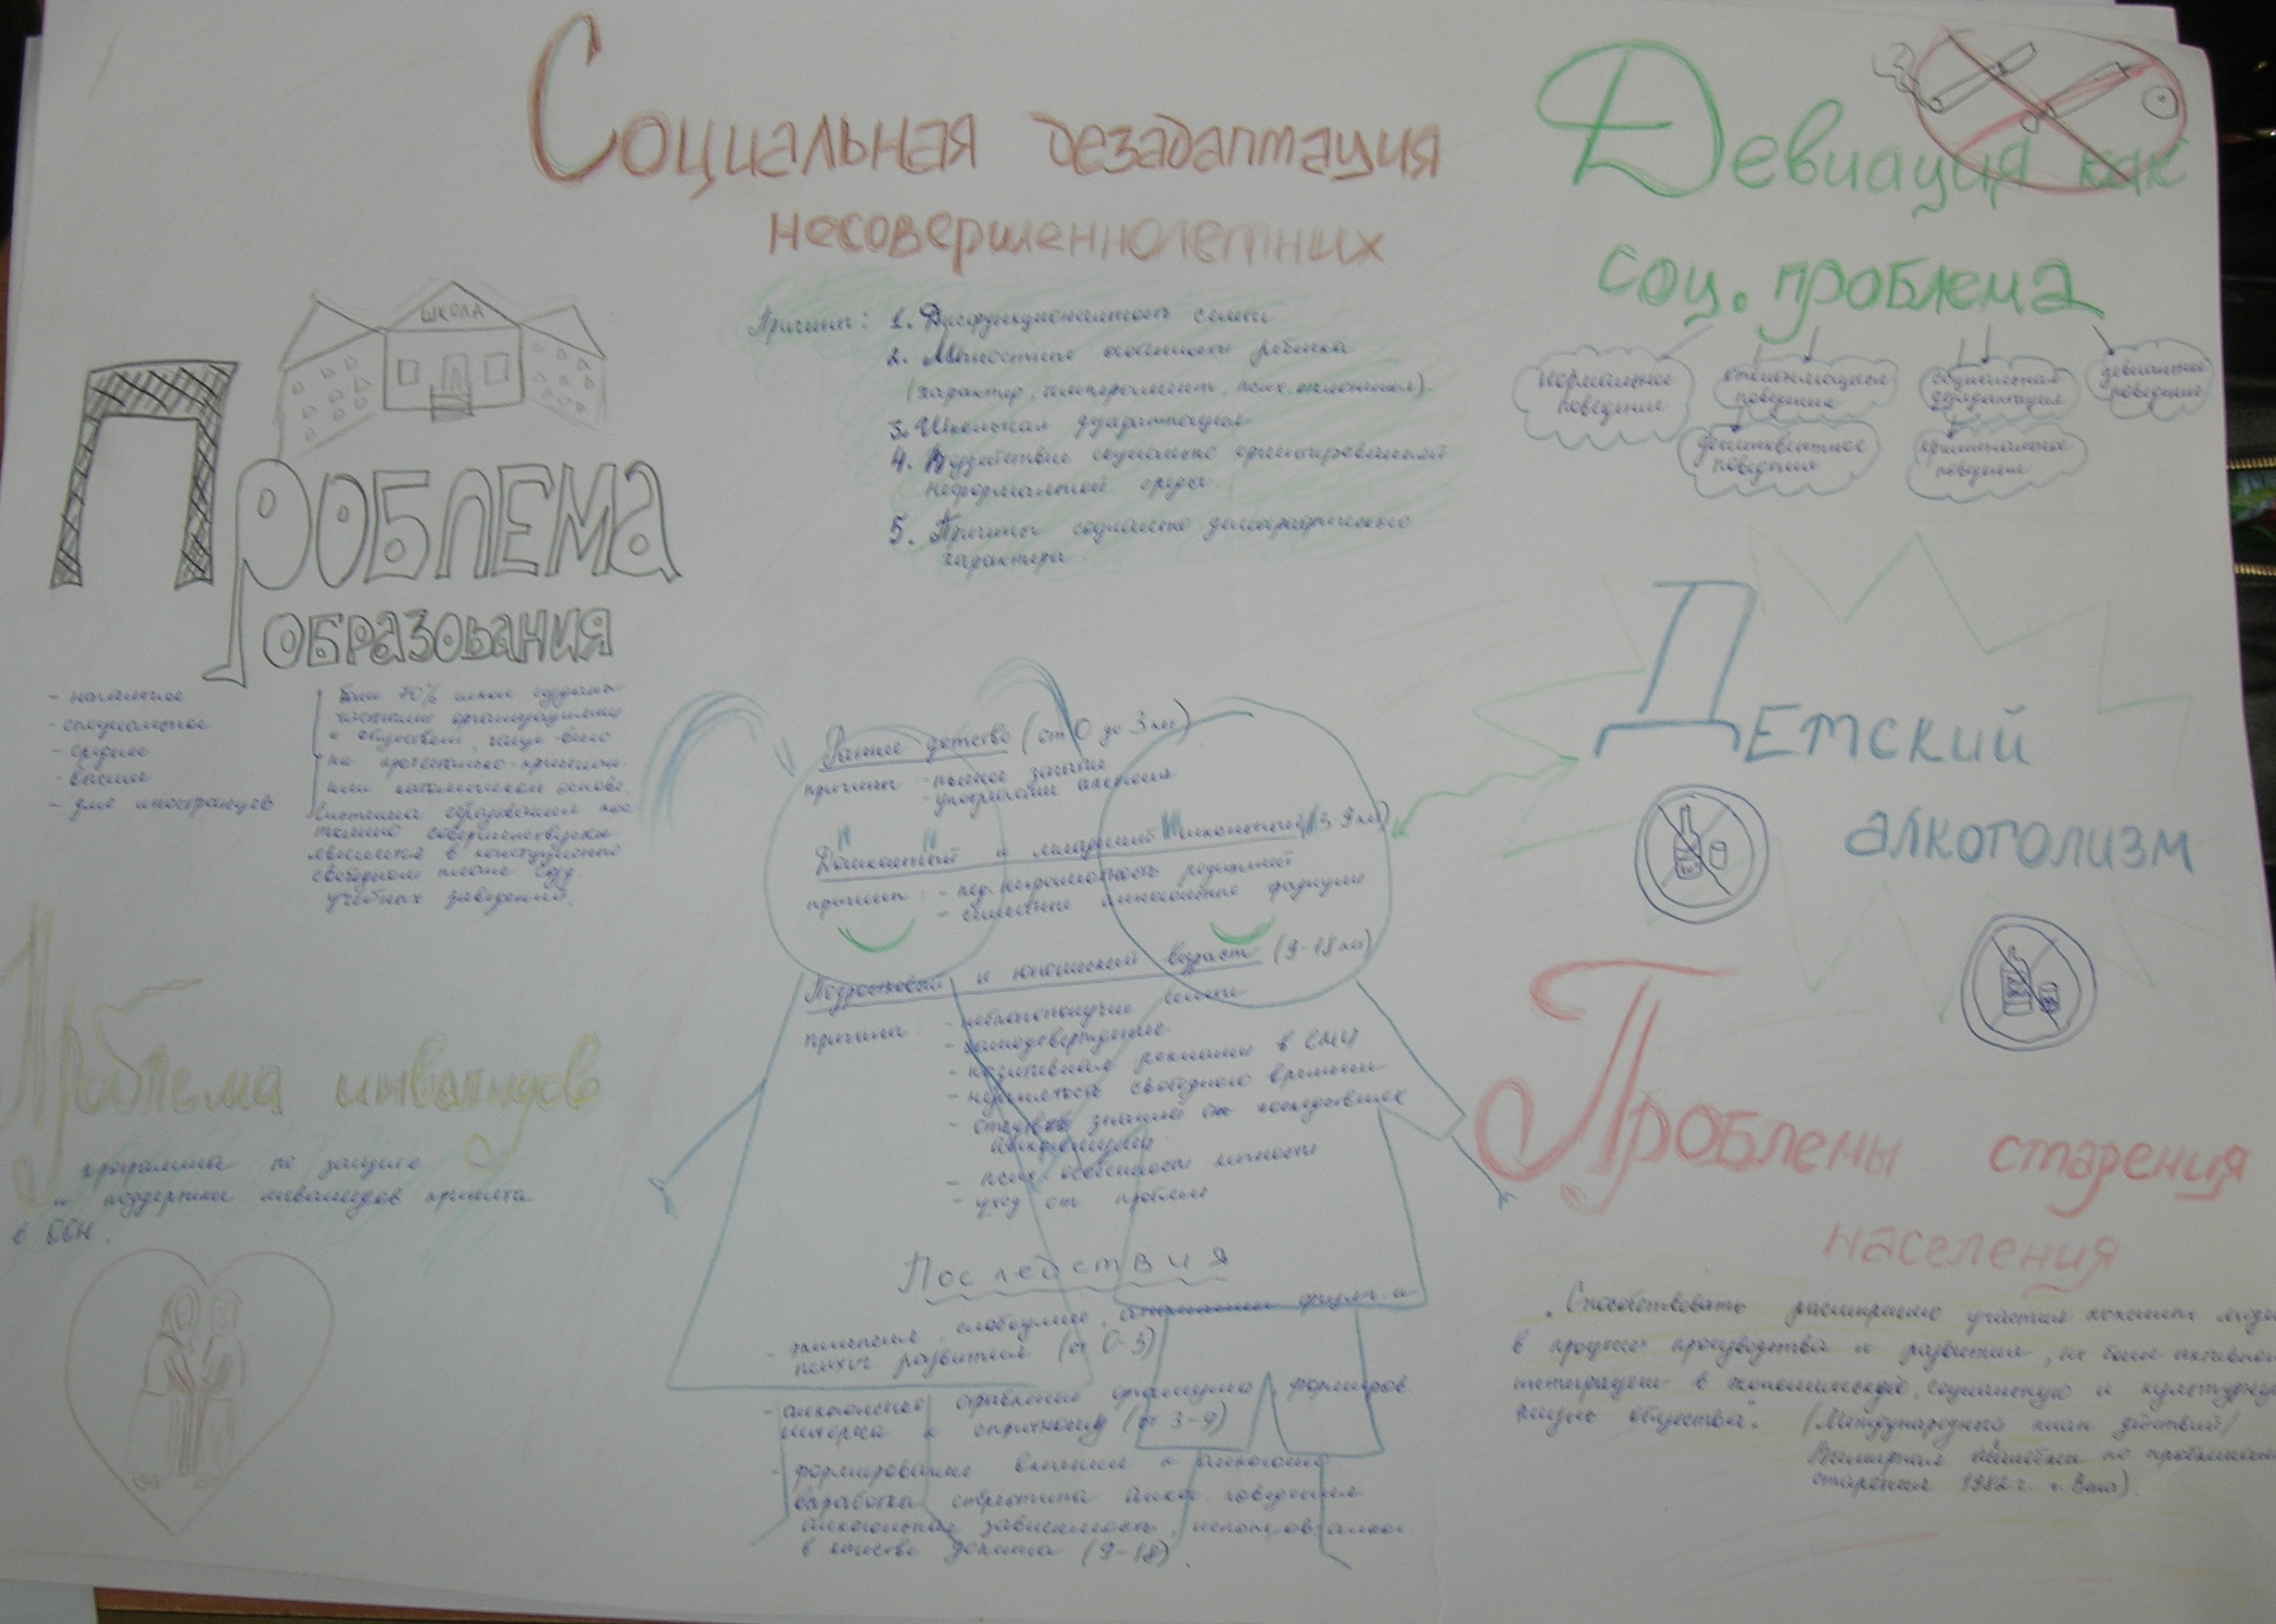 Социальная дезадаптация
несовершеннолетних
Причины: 1. Дисфункциональность семьи
2. Личностные особенности ребенка
(характер, темперамент, псих. отклонения)
3. Школьная дезадаптация
4. Воздействие социально ориентированной
неформальной среды.
5. Причины социально-демографического
характера.
Девиация как
соц. проблема
нормальное
поведение
отклоняющееся
поведение
социальная
дезадаптация
девиантное
поведение
делинквентное
поведение
криминальное
поведение
ШКОЛА
Проблема
образования
- начальное
- специальное
- среднее
- высшее
- для иностранцев
70% школ созданы
частными организациями
и обществом, чаще всего
на протестантско-
или католической основе.
Система образования пос-
тоянно совершенствуется
является в
свободном плане созд.
учебных заведений.
Проблема инвалидов
программа по защите
и поддержки инвалидов принята
в ООН.
Детский
алкоголизм
Раннее детство (от 0 до 3 лет)
причины: - пьяное зачатие
- употребление алкоголя
Дошкольный и младший школьный (3-9 лет)
причины: - пед. неграмотность родителей
- семейные алкогольные традиции
Подростковый и юношеский возраст (9-18 лет)
причины: - неблагополучие семьи
- самоутверждение
- позитивная реклама в СМИ
- незанятость свободного времени
- отсутствие знаний о последствиях
алкоголизма
- псих. особенности личности
- уход от проблем
Последствия
- эпилепсия, слабоумие, физич. и
психич. развития (от 0-3)
- алкогольное отравление организма, формиров.
интереса к спиртному (от 3-9)
- формирование влечения к алкоголю
выработка стереотипа алког. поведения
алкогольная зависимость, использов. алког.
в качестве допинга (9-18).
Проблемы старения
населения
"Способствовать расширению участия пожилых людей
в процессе производства и развития, их более активной
интеграции в экономическую, социальную и культурную
жизнь общества". (Международный план действий/
Всемирная по проблемам
старения 1982 г. г. Вена).